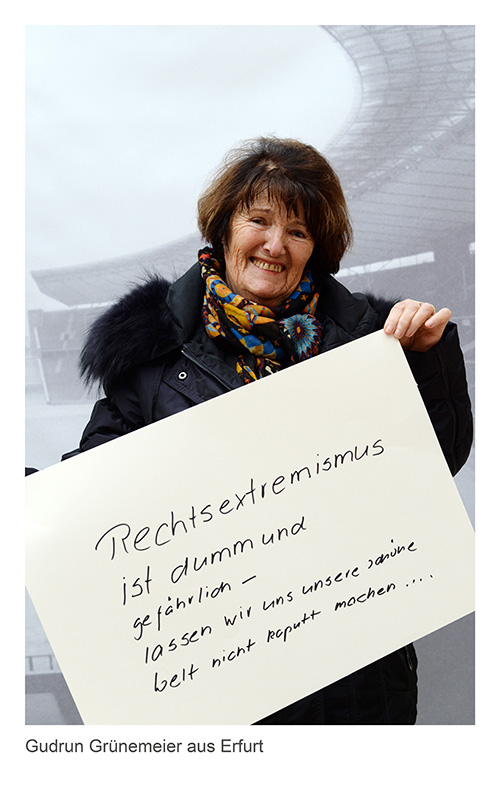 Rechtsextremismus
ist dumm und
gefährlich –
lassen wir uns unsere schöne
Welt nicht kaputt machen ....
Gudrun Grünemeier aus Erfurt